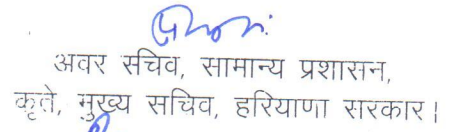 अवर सचिव, सामान्य प्रशासन,
कृते, मुख्य सचिव, हरियाणा सरकार।